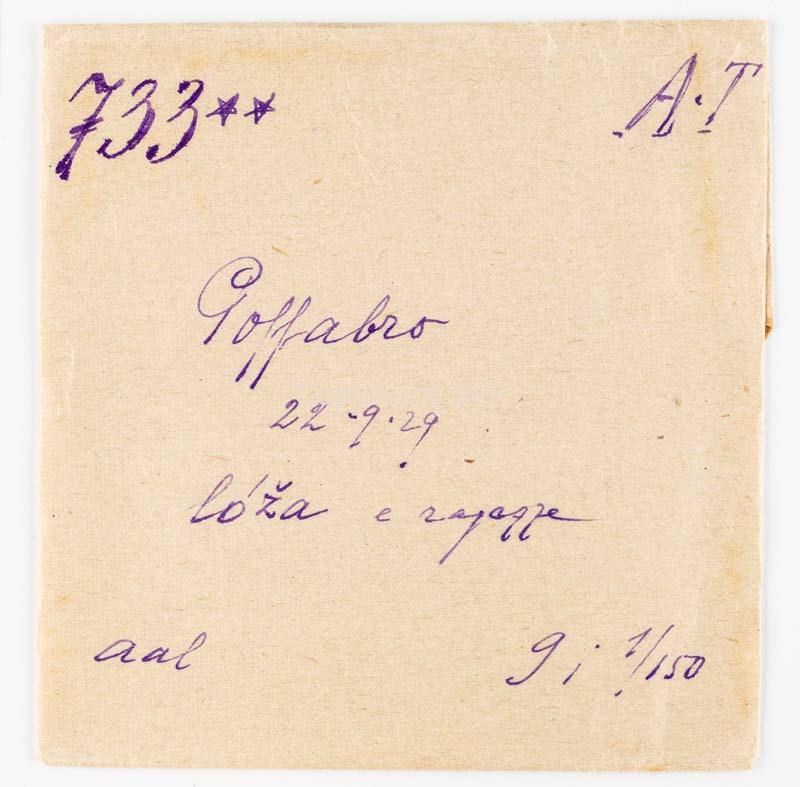 733** A.T
Poffabro
22-9-29
lóža e
aal 9 i 1/150